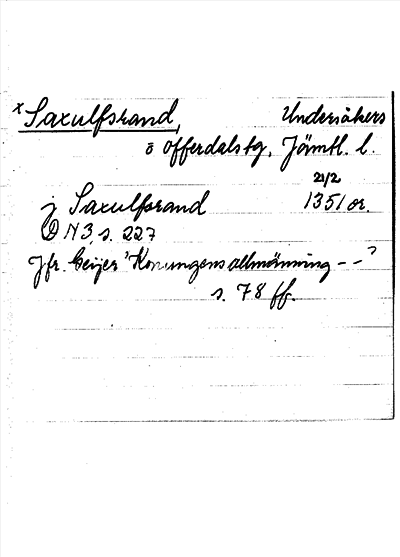 x Saxulfsrand, Undersåkers
ö Offerdals tg, Jämtl. l.
21/2
j Saxulfsrand 1351 or.
D N 3, s. 227
Jfr. Geijer "Konungens allmänning - -"
s. 78 ff.